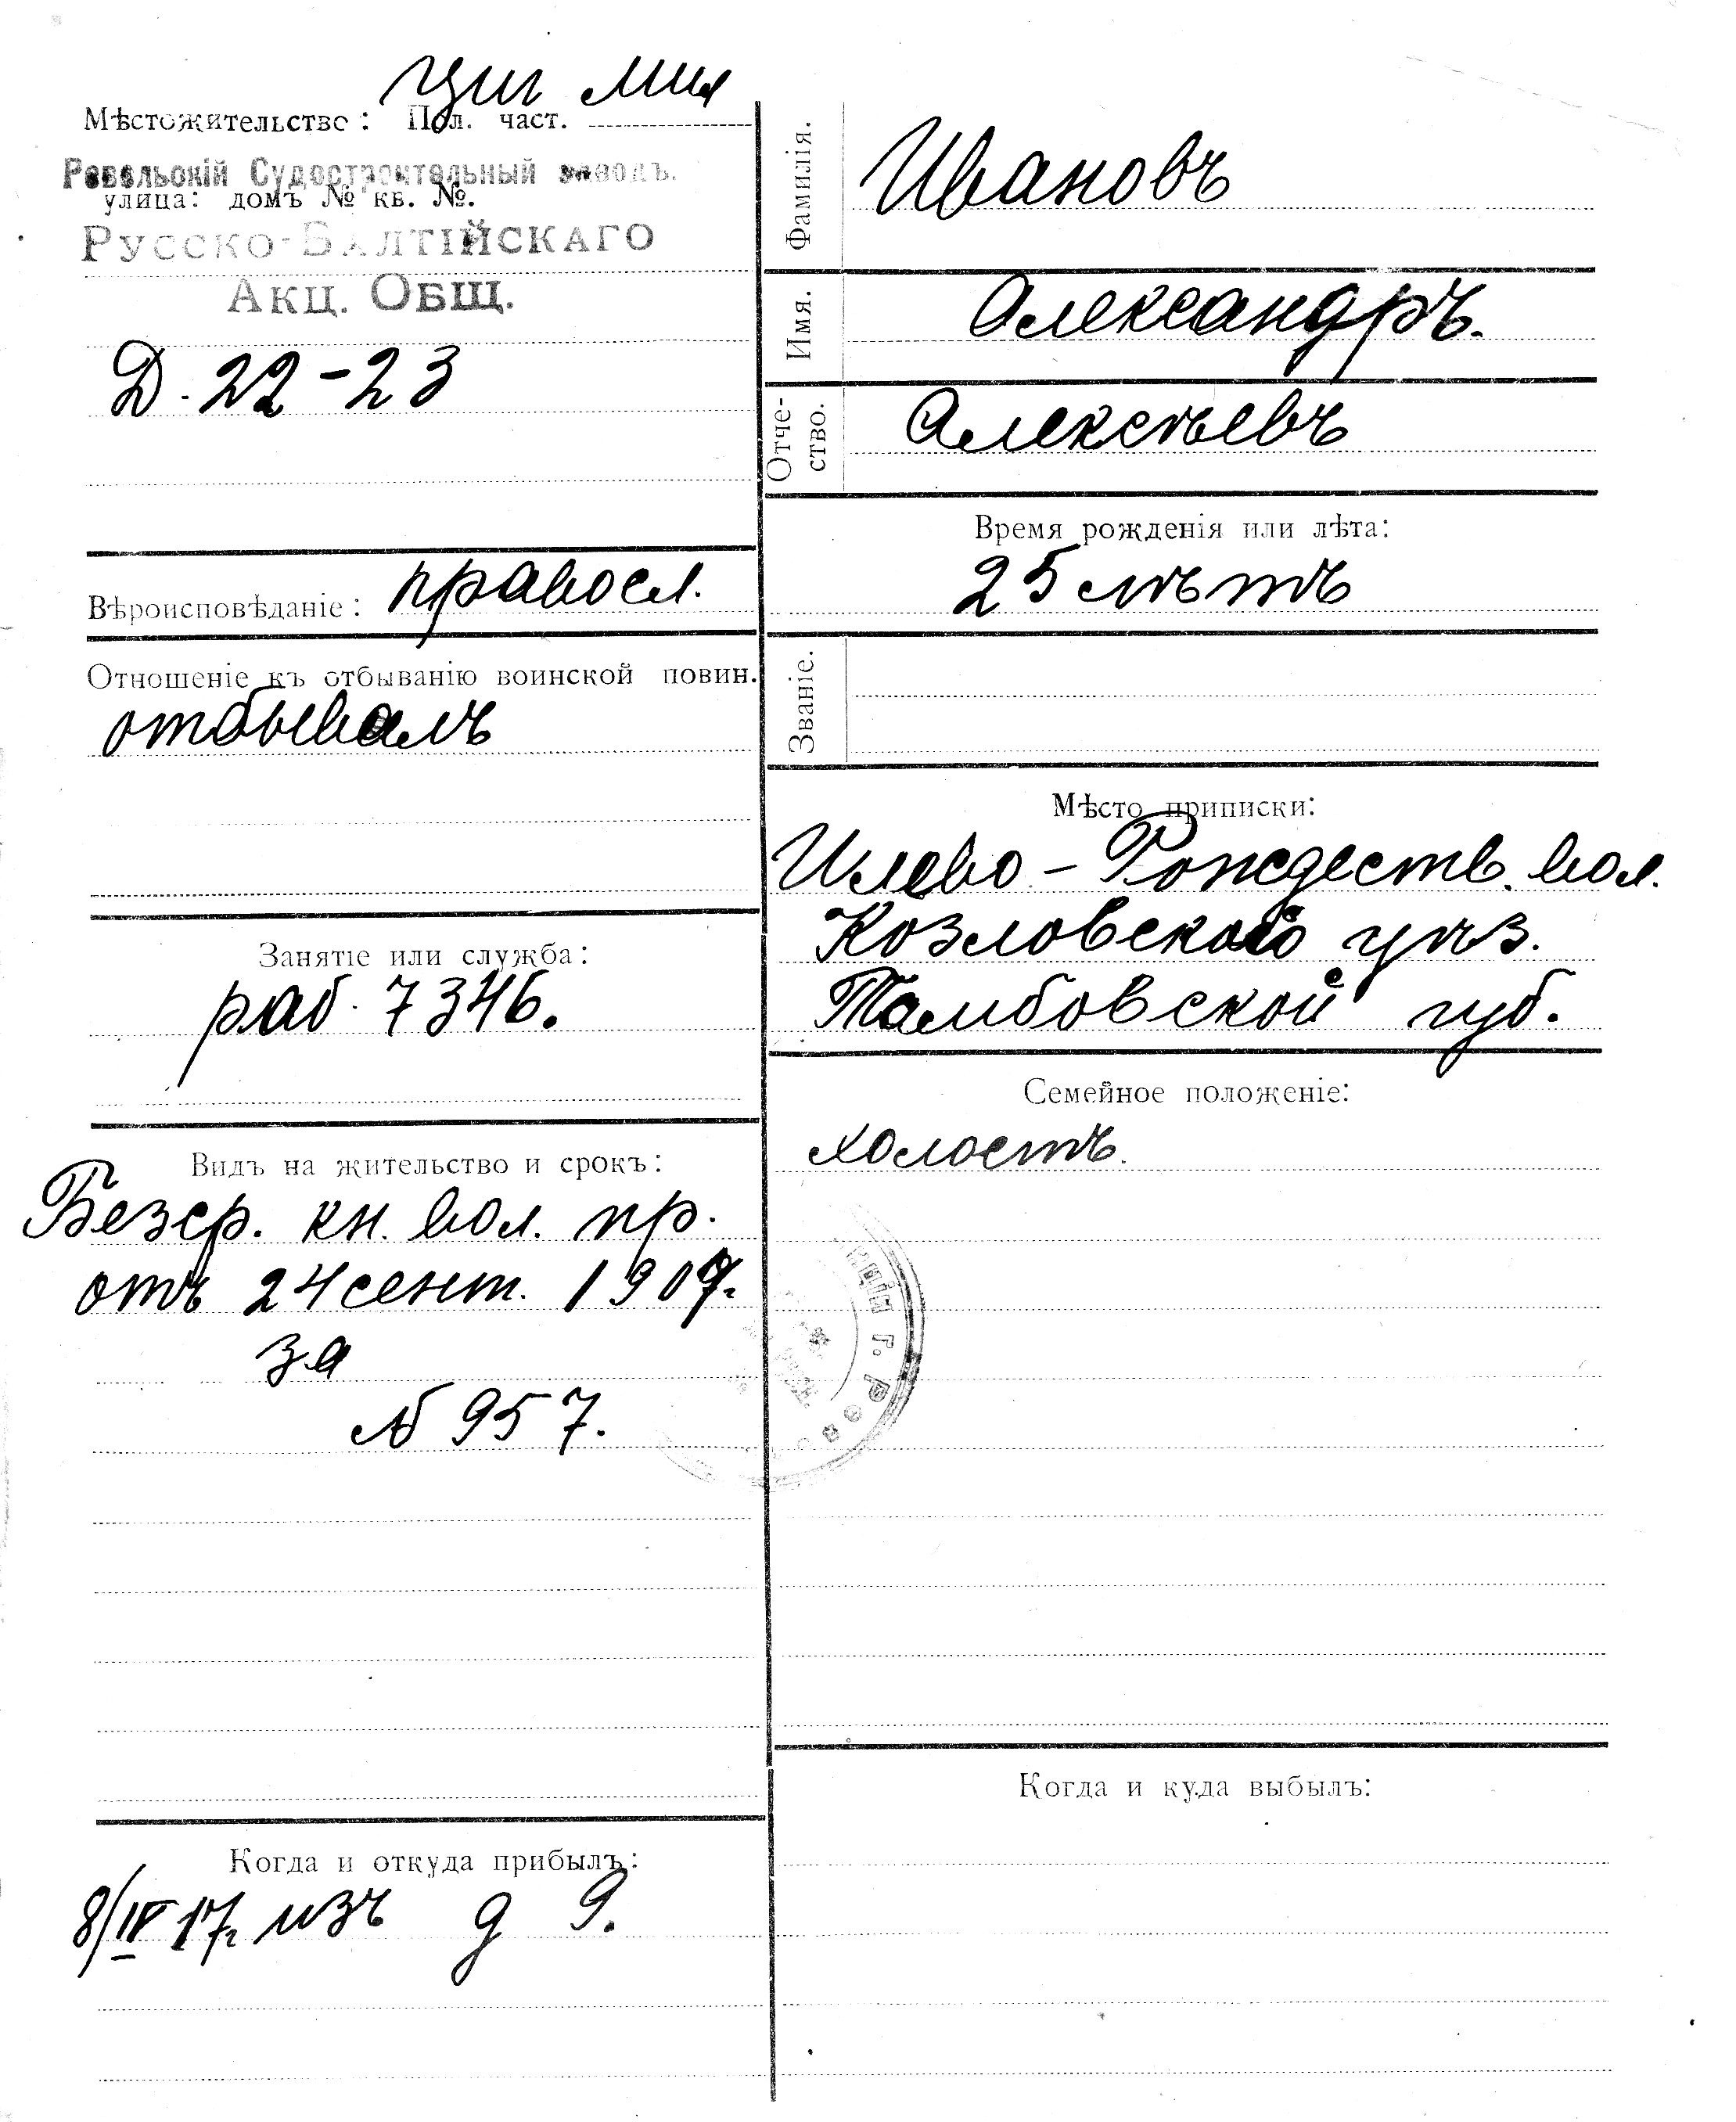 Циг мня
Мѣстожительство: Пол. част.
Ревельскій Судостроительный заводъ.
улица: домъ № кв. №.
Русско-Балтійскаго
Акц. Общ.
Д. 22-23
Вѣроисповѣданіе: правосл.
Отношеніе къ отбыванію воинской повин.
отбывалъ
Занятіе или служба:
раб. 7346.
Видъ на жительство и срокъ:
Безср. кн. вол. пр.
отъ 24 сент. 1907.
за
№ 957.
Когда и откуда прибылъ:
8/IV 17г. изъ д 9.
Фамилія. Ивановъ
Имя. Александръ.
Отче-
ство. Алексѣевъ
Время рожденія или лѣта:
25 лѣтъ
Званіе.
Мѣсто приписки:
Илево-Рождеств. вол.
Козловского уѣз.
Тамбовской губ.
Семейное положеніе:
холостъ.
г. Рев
Когда и куда выбылъ: